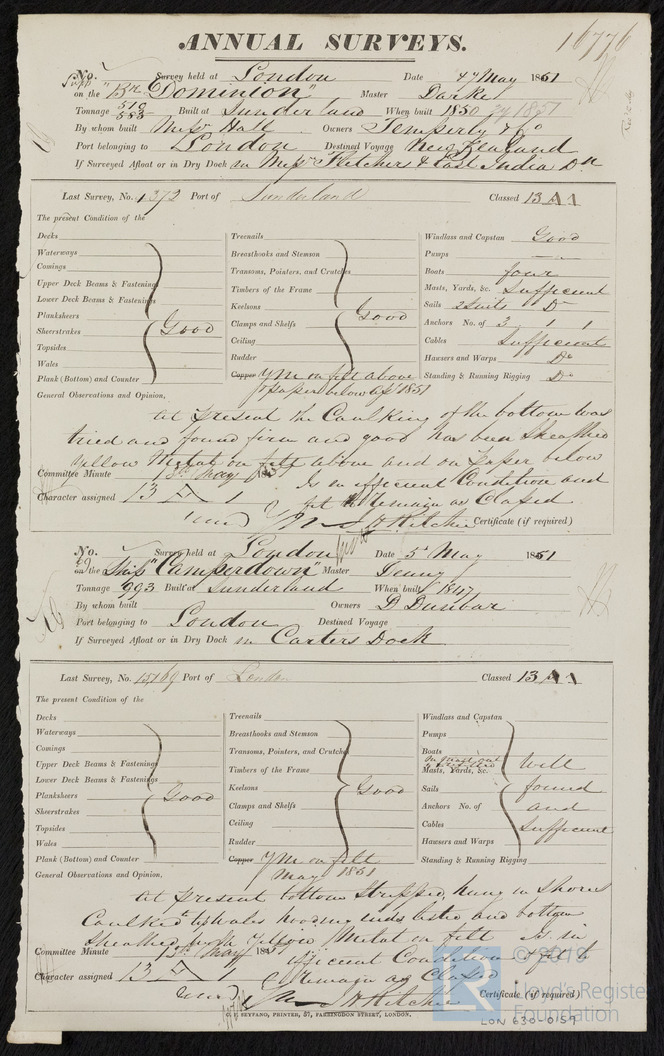 ANNUAL SURVEYS.
16776
No. Survey held at London Date 4th May 1851
on the "Bk Dominion" Master Darke
Tonnage 510 583 Built at Sunderland When built 1850
By whom built Messrs Hall Owners Temperly & Co
Port belonging to London Destined Voyage New Zealand
If Surveyed Afloat or in Dry Dock in Messrs Fletcher & East India Dn
Last Survey, No. 1372 Port of Sunderland Classed 13 A 1
The present Condition of the
Decks
Waterways
Comings
Upper Deck Beams & Fastenings
Lower Deck Beams & Fastenings
Planksheers
Sheerstrakes Good
Topsides
Wales
Plank (Bottom) and Counter
Treenails
Breasthooks and Stemson
Transoms, Pointers, and Crutches
Timbers of the Frame
Keelsons
Clamps and Shelfs Good
Ceiling
Rudder
Copper YM on felt above
& paper below Apl 1851
Windlass and Capstan Good
Pumps
Boats four
Masts, Yards, &c. Sufficient
Sails 2 Suits Do
Anchors No. of 3 1 1
Cables Sufficient
Hawsers and Warps Do
Standing & Running Rigging Do
General Observations and Opinion,
At present the Caulking of the bottom was
tried and found firm and good has been Sheathed
Yellow Metal on felt above and on Paper below
Committee Minute May 185 Is in efficient Condition and
Character assigned 13 A 1 fit to Remain as Classed
J H Ritchie Certificate (if required)
No. Survey held at London Date 5th May 1851
on the Ship "Camperdown" Master Denny
Tonnage 993 Built at Sunderland When built 1847
By whom built Owners D Dunbar
Port belonging to London Destined Voyage
If Surveyed Afloat or in Dry Dock in Carters Dock
Last Survey, No. 15169 Port of London Classed 13 A 1
The present Condition of the
Decks
Waterways
Comings
Upper Deck Beams & Fastenings
Lower Deck Beams & Fastenings
Planksheers Good
Sheerstrakes
Topsides
Wales
Plank (Bottom) and Counter
Treenails
Breasthooks and Stemson
Transoms, Pointers, and Crutches
Timbers of the Frame
Keelsons Good
Clamps and Shelfs
Ceiling
Rudder
Copper YM on felt
May 1851
Windlass and Capstan
Pumps
Boats
Masts, Yards, &c. Well
Sails found
Anchors No. of and
Cables Sufficient
Hawsers and Warps
Standing & Running Rigging
General Observations and Opinion,
At present bottom Stripped, hung in Shores
Caulked Wales Hooding ends listed and bottom
Sheathed with Yellow Metal on felt Is in
Committee Minute May 185 efficient Condition & fit to
Character assigned 13 A 1 Remain as Classed
J H Ritchie Certificate (if required)
C. F. SEYFANG, PRINTER, 57, FARRINGDON STREET, LONDON.
© 2019
Lloyd's Register
Foundation
LON 630-0159